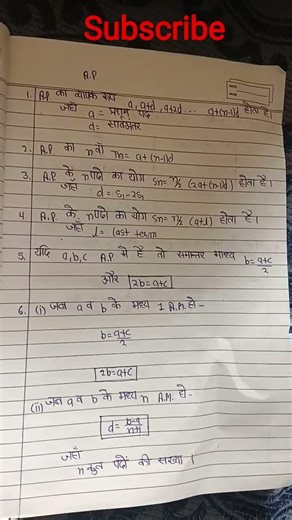 Subscribe
A.P
1. A.P. का व्यापक रूप a, a+d, a+2d ... a+(n-1)d होता है।
जहाँ a = प्रथम पद
d = सार्वअंतर
2. A.P. का n वाँ Tn = a+(n-1)d
3. A.P के n पदों का योग Sn = n/2 (2a+(n-1)d) होता है।
जहाँ d = S₂-2S₁
4. A.P. के n पदों का योग Sn = n/2 (a+l) होता है।
जहाँ l = last term
5. यदि a, b, c A.P में है तो समान्तर माध्य b = a+c/2
और 2b = a+c
6. (i) जब a व b के मध्य 1 A.M. हो -
b = a+c/2
2b = a+c
(ii) जब a व b के मध्य n A.M. हो -
d = b-a/n+1
जहाँ
n कुल पदों की संख्या।